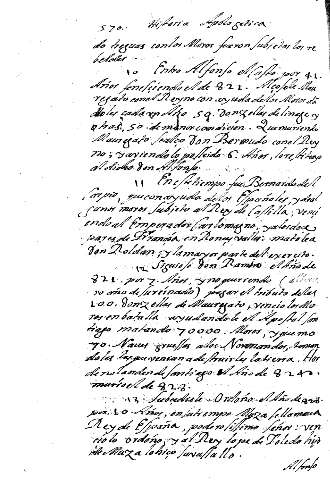 570. Historia Apologetica
do treguas con los Moros fueron subjetos los re
beldes.
10 Entro Alfonso el Casto por 41.
Años feneciendo el de 821. Alçose Mau
regato con el Reyno con ayuda de los Moros dan
doles cada un Año 50 donzellas de linage, y
otras 50 de menor condicion. Que muriendo
Mauregato sucedio Don Bermudo con el Rey
no; y aviendolo posseido 6 Años,
al dicho Don Alfonso.
11 En su tiempo fue Bernardo del
Carpio, que con ayuda de los Españoles, y
Moros subjetos al Rey de Castilla, venci
endo al Emperador Carlomagno, y a los doze
pares de Francia en Roncesvalles: mato a
Don Roldan, y la mayor parte del exercito.
12 Siguiose Don Ramiro el Año de
821. por 7 Años, y no queriendo
pagar el tributo de las
100. donzellas de Mauregato, vencio los Mo
ros en batalla ayudandole el Apostol San
tiago matando 70000. Moros, y quemo
70. Naves gruessas a los Normandos,
das las que venian a destruirles la tierra.
den de Santiago el Año de 824
murio el de 828.
13 Ordoño el Año de 828
por 10 Años, en su tiempo Muza se llamava
Rey de España, poderosissimo señor: ven
ciolo Ordoño, y al Rey Lope de Toledo hijo
de Muza lo hizo su vasallo.
Alfonso